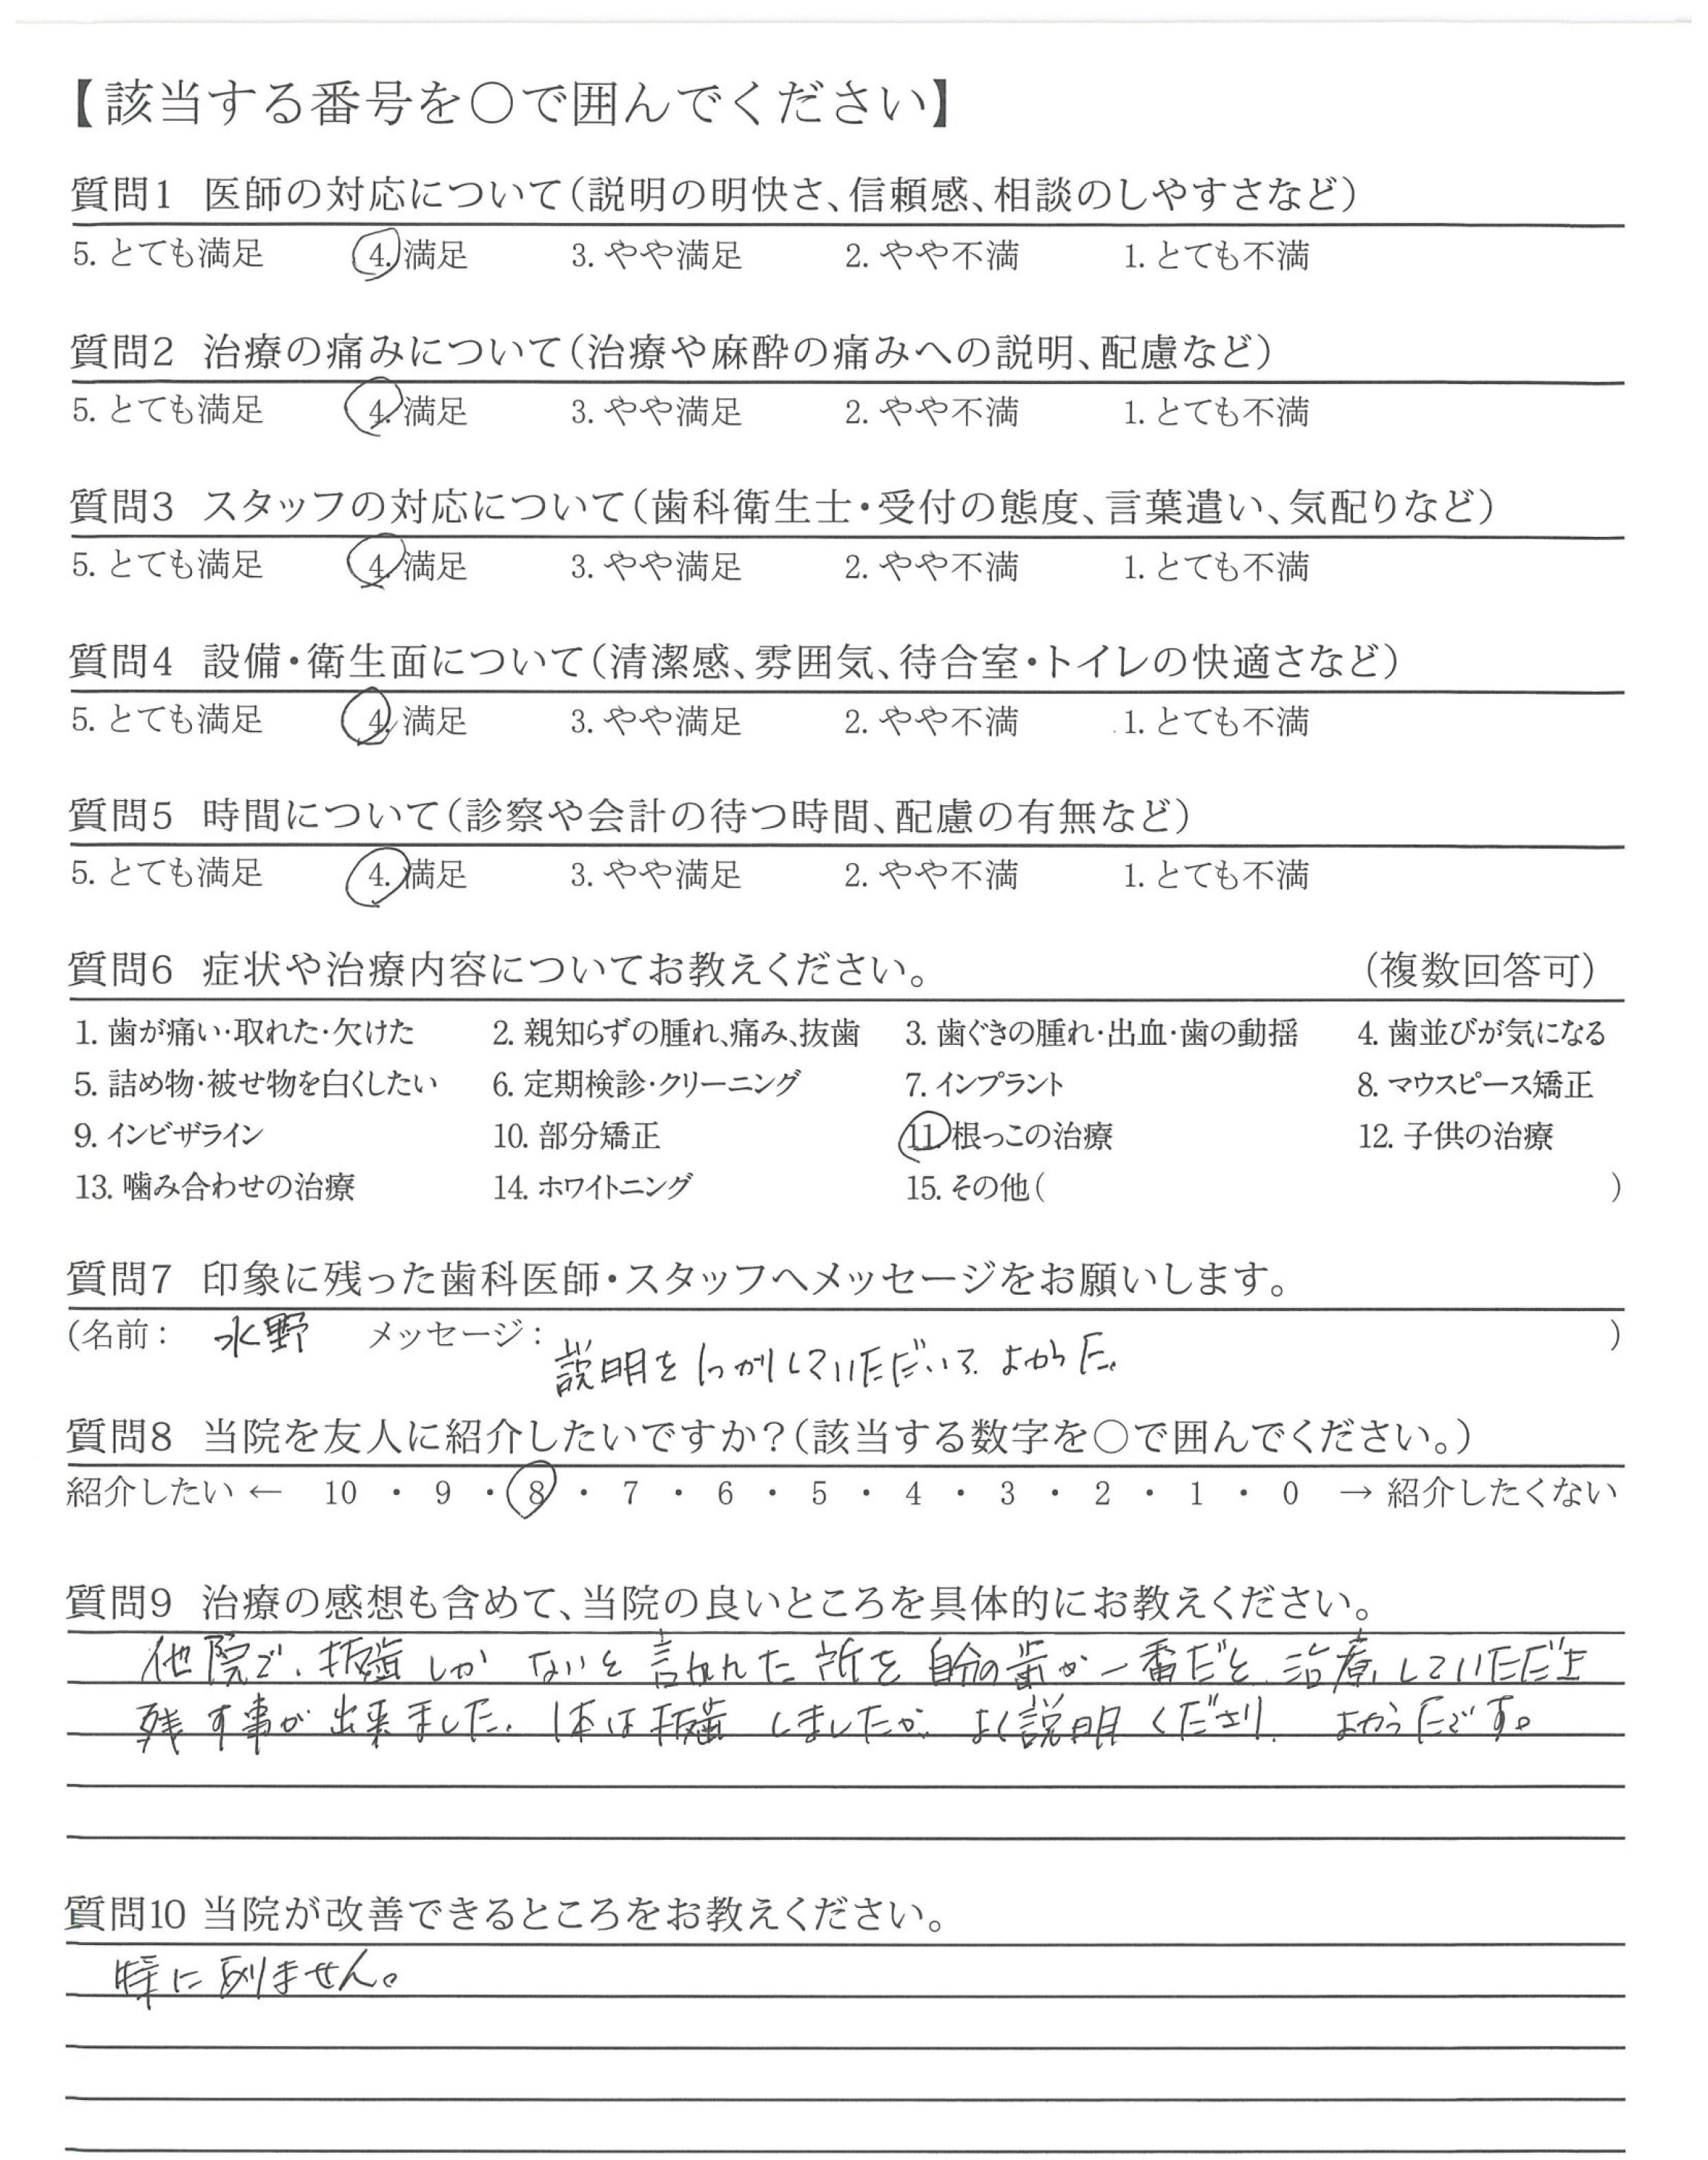 【該当する番号を○で囲んでください】
質問1 医師の対応について(説明の明快さ、信頼感、相談のしやすさなど)
5. とても満足 4. 満足 3. やや満足 2. やや不満 1. とても不満
質問2 治療の痛みについて(治療や麻酔の痛みへの説明、配慮など)
5. とても満足 4. 満足 3. やや満足 2. やや不満 1. とても不満
質問3 スタッフの対応について(歯科衛生士・受付の態度、言葉遣い、気配りなど)
5. とても満足 4. 満足 3. やや満足 2. やや不満 1. とても不満
質問4 設備・衛生面について(清潔感、雰囲気、待合室・トイレの快適さなど)
5. とても満足 4. 満足 3. やや満足 2. やや不満 1. とても不満
質問5 時間について(診察や会計の待つ時間、配慮の有無など)
5. とても満足 4. 満足 3. やや満足 2. やや不満 1. とても不満
質問6 症状や治療内容についてお教えください。 (複数回答可)
1. 歯が痛い・取れた・欠けた 2. 親知らずの腫れ、痛み、抜歯 3. 歯ぐきの腫れ・出血・歯の動揺 4. 歯並びが気になる
5. 詰め物・被せ物を白くしたい 6. 定期検診・クリーニング 7. インプラント 8. マウスピース矯正
9. インビザライン 10. 部分矯正 11. 根っこの治療 12. 子供の治療
13. 噛み合わせの治療 14. ホワイトニング 15. その他( )
質問7 印象に残った歯科医師・スタッフへメッセージをお願いします。
(名前: 水野 メッセージ: )
説明をしっかりしていただいて、よかった。
質問8 当院を友人に紹介したいですか?(該当する数字を○で囲んでください。)
紹介したい ← 10 ・ 9 ・ 8 ・ 7 ・ 6 ・ 5 ・ 4 ・ 3 ・ 2 ・ 1 ・ 0 → 紹介したくない
質問9 治療の感想も含めて、当院の良いところを具体的にお教えください。
他院で、抜歯しかないと言われた所を自分の歯が一番だと、治療していただき
残す事が出来ました。1本は抜歯しましたが、よく説明くださり、よかったです。
質問10 当院が改善できるところをお教えください。
特に有りません。